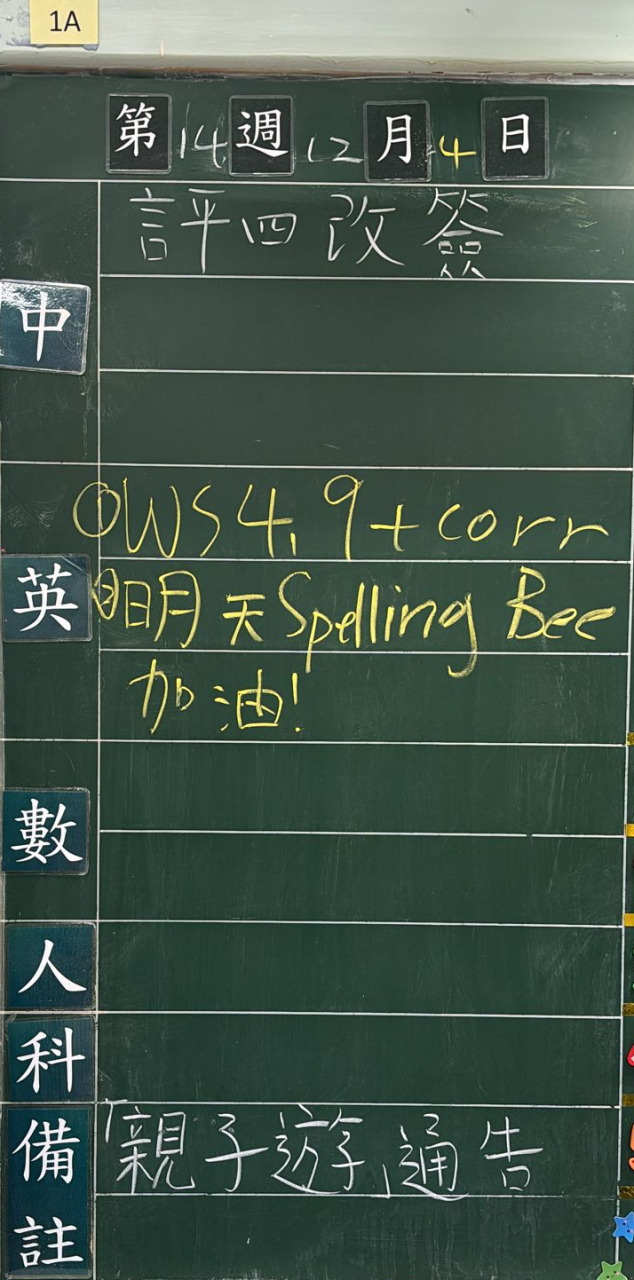 1A
第14週12月4日
評四改簽
中
①WS4.9+corr
英
②明天Spelling Bee
加油!
數
人
科
備
「親子遊」通告
註